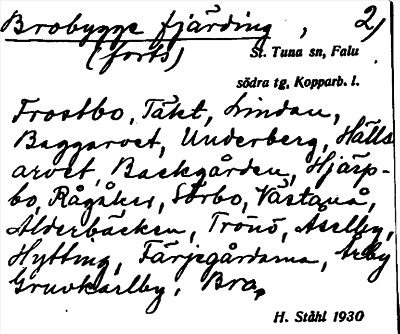 Brobygge fjärding, 2)
(forts)
St. Tuna sn, Falu
södra tg, Kopparb. l.
Frostbo, Täkt, Lindan,
Baggarvet, Underberg, Hälls
arvet, Backgården, Hjärp-
bo, Rågåker, Sörbo, Västanå,
Alderbäcken, Tronö, Aselby,
Hytting, Färjegårdarna, Årby
Gruvkarlby, Bro,
H. Ståhl 1930